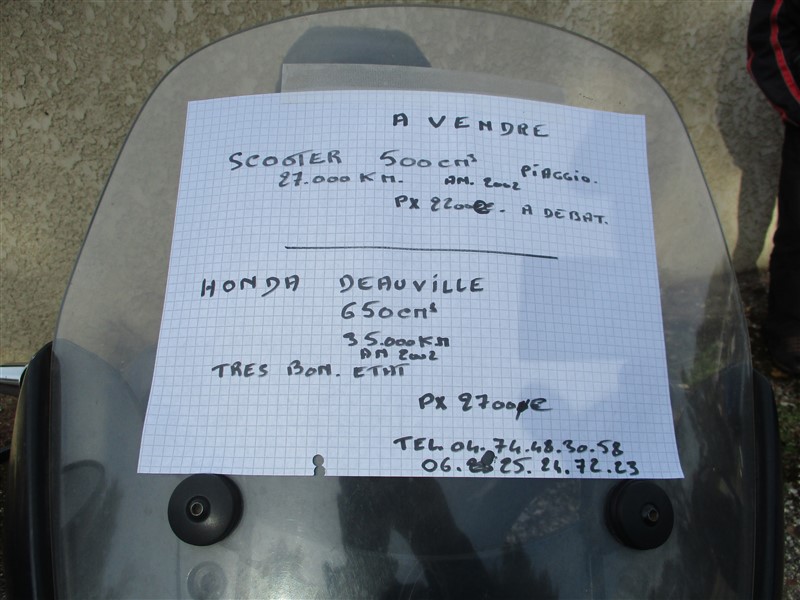 A VENDRE
SCOOTER 500cm³ PIAGGIO.
27.000 KM. AM. 2002
PX 2200€. A DEBAT.
HONDA DEAUVILLE
650cm³
35.000 KM
AM 2002
TRES BON. ETAT
PX 2700€
TEL. 04.74.48.30.58
06. 25.24.72.23